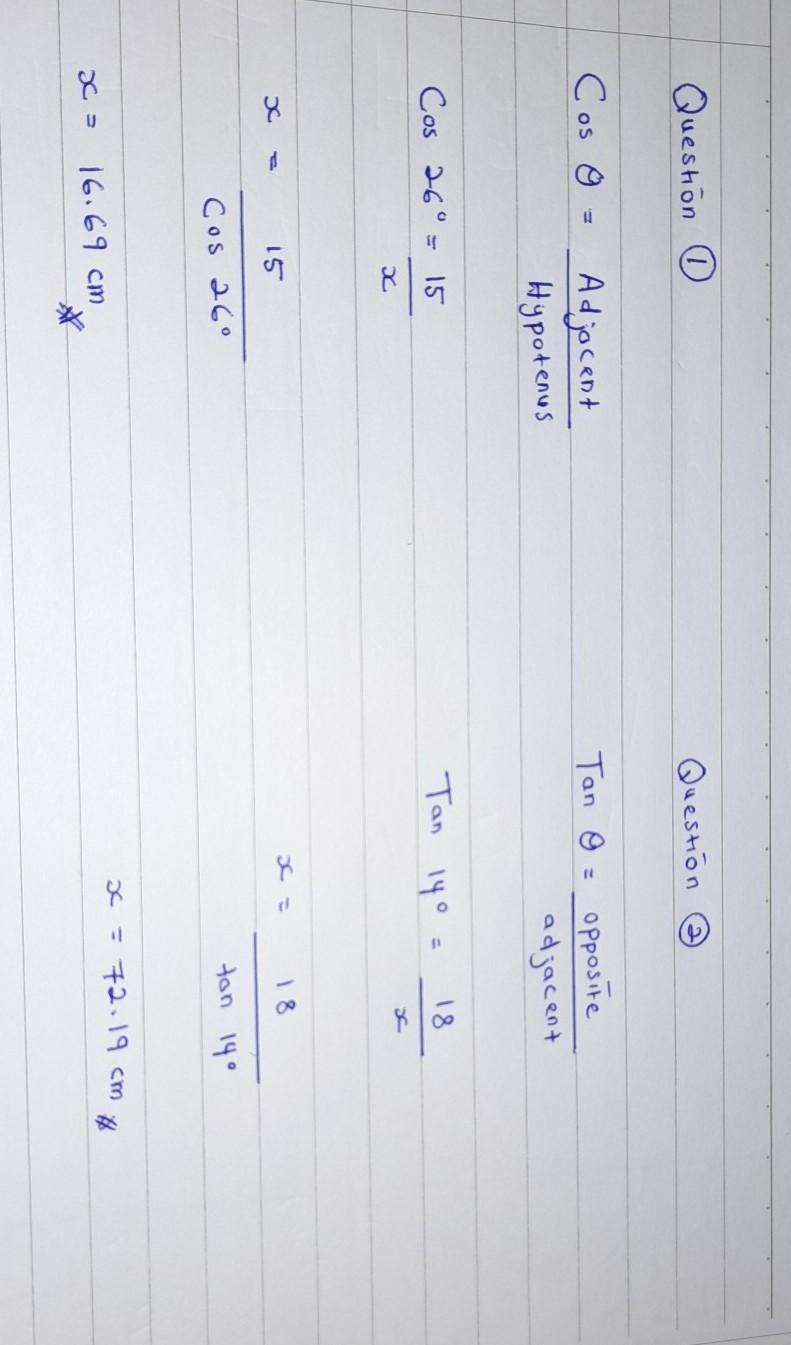 Question ①
Cos θ = Adjacent
Hypotenus
Cos 26° = 15
x
x = 15
Cos 26°
x = 16.69 cm
Question ②
Tan θ = opposite
adjacent
Tan 14° = 18
x
x = 18
tan 14°
x = 72.19 cm